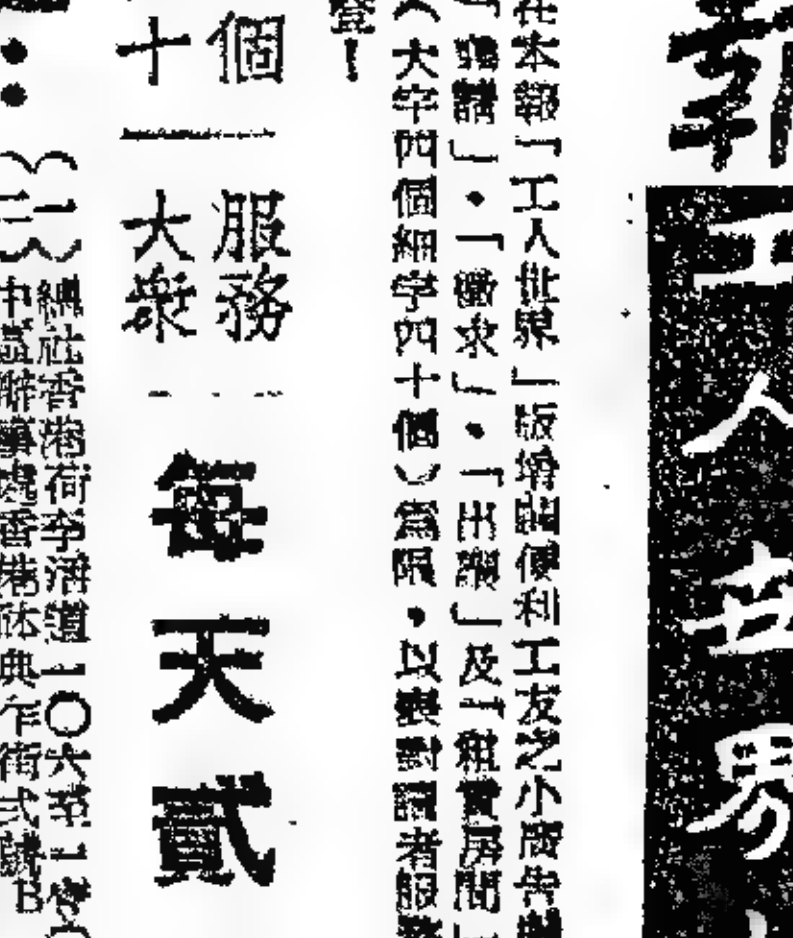 報
工人世界
在本報「工人世界」版增闢便利工友之小廣告欄
」・「徵求」・「出讓」及「租賃房間」
（大字四個細字四十個）為限，以表對讀者服務
登！
個 服務
十 大衆
每天貳
（一）總社香港荷李活道一〇六至一
（二）中區辦事處香港砵典乍街式號B